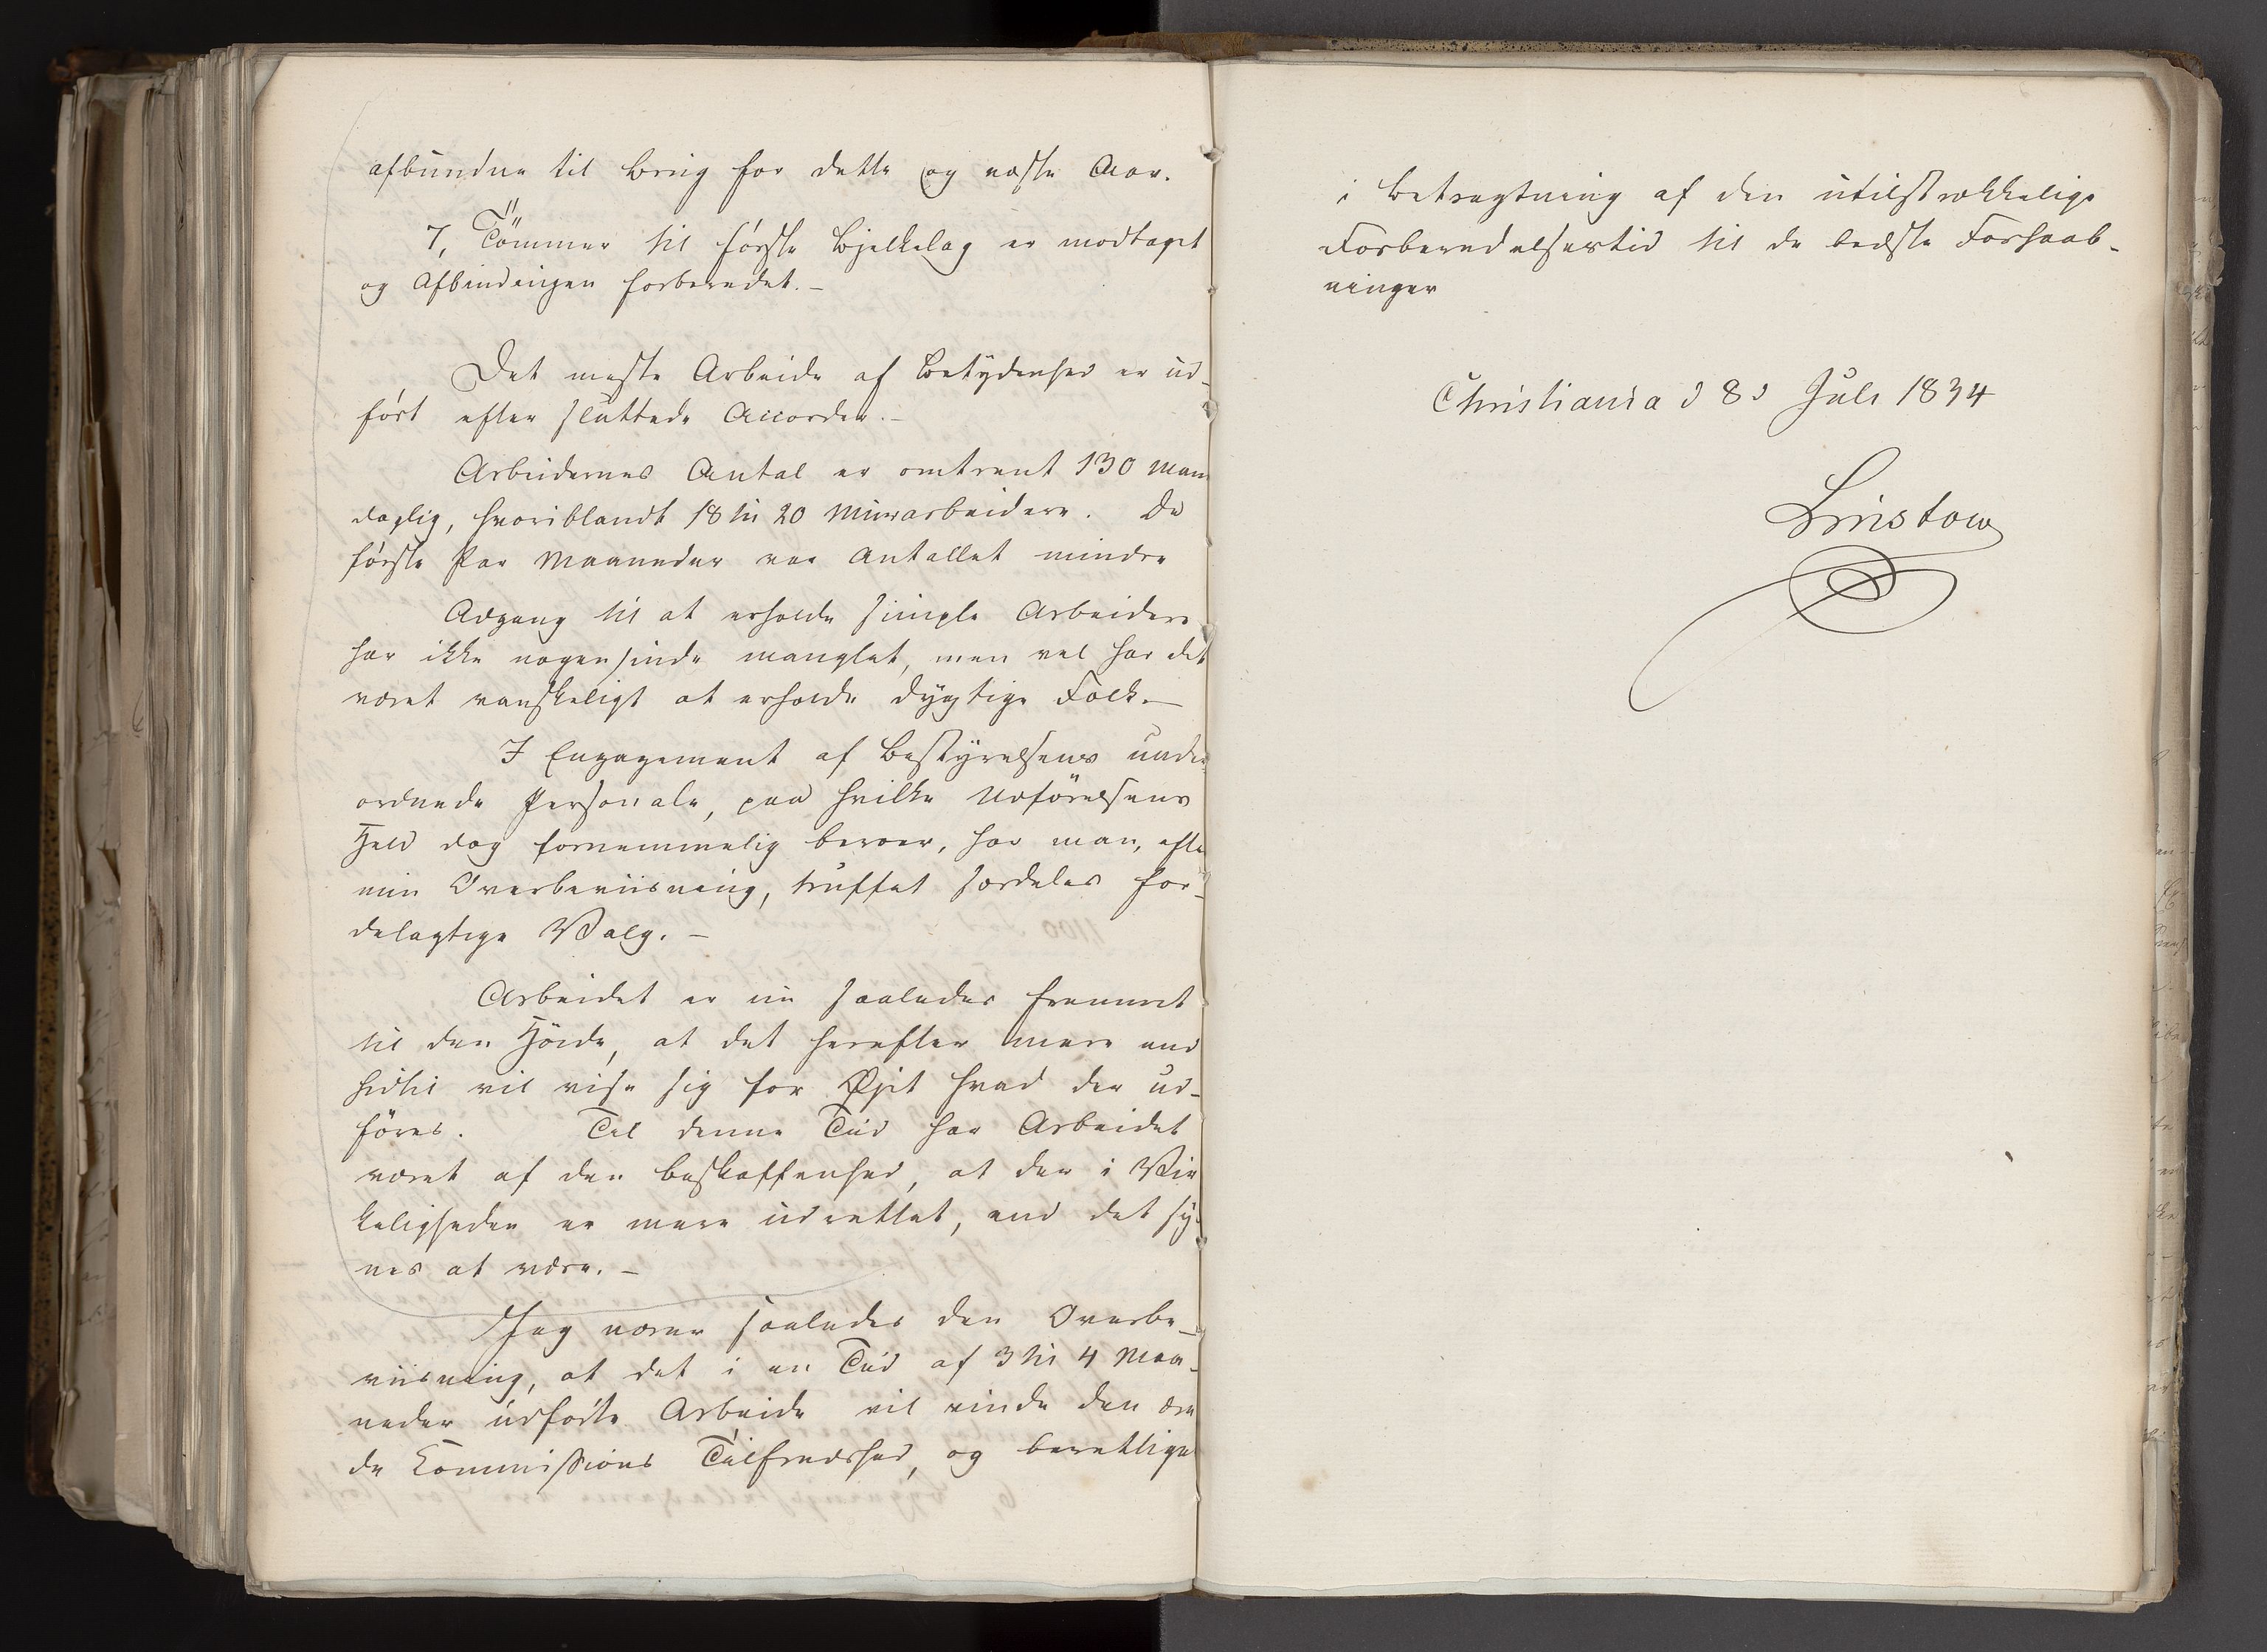 afbundne til Brug for dette og næste Aar.
7, Tömmer til første Bjelkelag er modtaget
og Afbindingen forberedet.—
Det meste Arbeide af Betydenhed er ud-
ført efter sluttede Accorder.—
Arbeidernes Antal er omtrent 130 Man
daglig, hvoriblandt 18 til 20 Muurarbeidere. De
første Par Maaneder var Antallet mindre
Adgang til at erholde simple Arbeidere
har ikke nogensinde manglet, men vel har det
været vanskeligt at erholde dygtige Folk.—
I Engagement af Bestyrelsens under
ordnede Personale, paa hvilke Udførelsens
Held dog fornemmelig beroer, har man, efter
min Overbeviisning, truffet særdeles for-
delagtige Valg.—
Arbeidet er nu saaledes fremmet
til den Höide, at det herefter mere end
hidtil vil vise sig for Øjet hvad der ud-
föres. Til denne Tiid har Arbeidet
været af den Beskaffenhed, at der i Vir
keligheden er mere udrettet, end det sy-
nes at være.—
Jeg nærer saaledes den Overbe-
viisning, at det i en Tiid af 3 til 4 Maa-
neder udførte Arbeide vil vinde den ære
de Commissions Tilfredshed, og berettige
i Betragtning af den utilstrækkelige
Forberedelsestid til de bedste Forhaab-
ninger
Christiania d 8d Juli 1834
Linstow